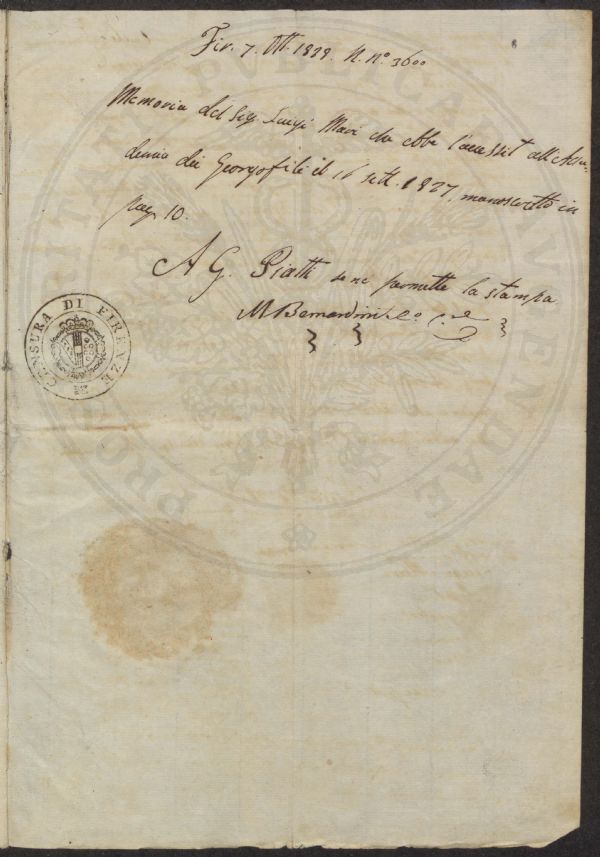 Fir. 7. Ott. 1828. N. nº. 3600
Memoria del Sig. Luigi Mari che ebbe l'accessit all'Acca-
demia dei Georgofili il 16 sett. 1827, manoscritto in
pag. 10.
A G. Piatti se ne permette la stampa
M Bernardini
CENSURA DI FIRENZE
PROSPERITATI PUBLICAE AUGENDAE